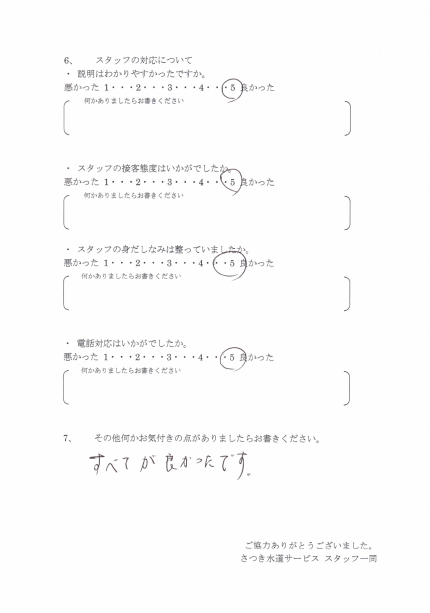 6、　スタッフの対応について
・ 説明はわかりやすかったですか。
悪かった 1・・・2・・・3・・・4・・・5 良かった
何かありましたらお書きください
・ スタッフの接客態度はいかがでしたか。
悪かった 1・・・2・・・3・・・4・・・5 良かった
何かありましたらお書きください
・ スタッフの身だしなみは整っていましたか。
悪かった 1・・・2・・・3・・・4・・・5 良かった
何かありましたらお書きください
・ 電話対応はいかがでしたか。
悪かった 1・・・2・・・3・・・4・・・5 良かった
何かありましたらお書きください
7、　その他何かお気付きの点がありましたらお書きください。
すべてが良かったです。
ご協力ありがとうございました。
さつき水道サービス スタッフ一同